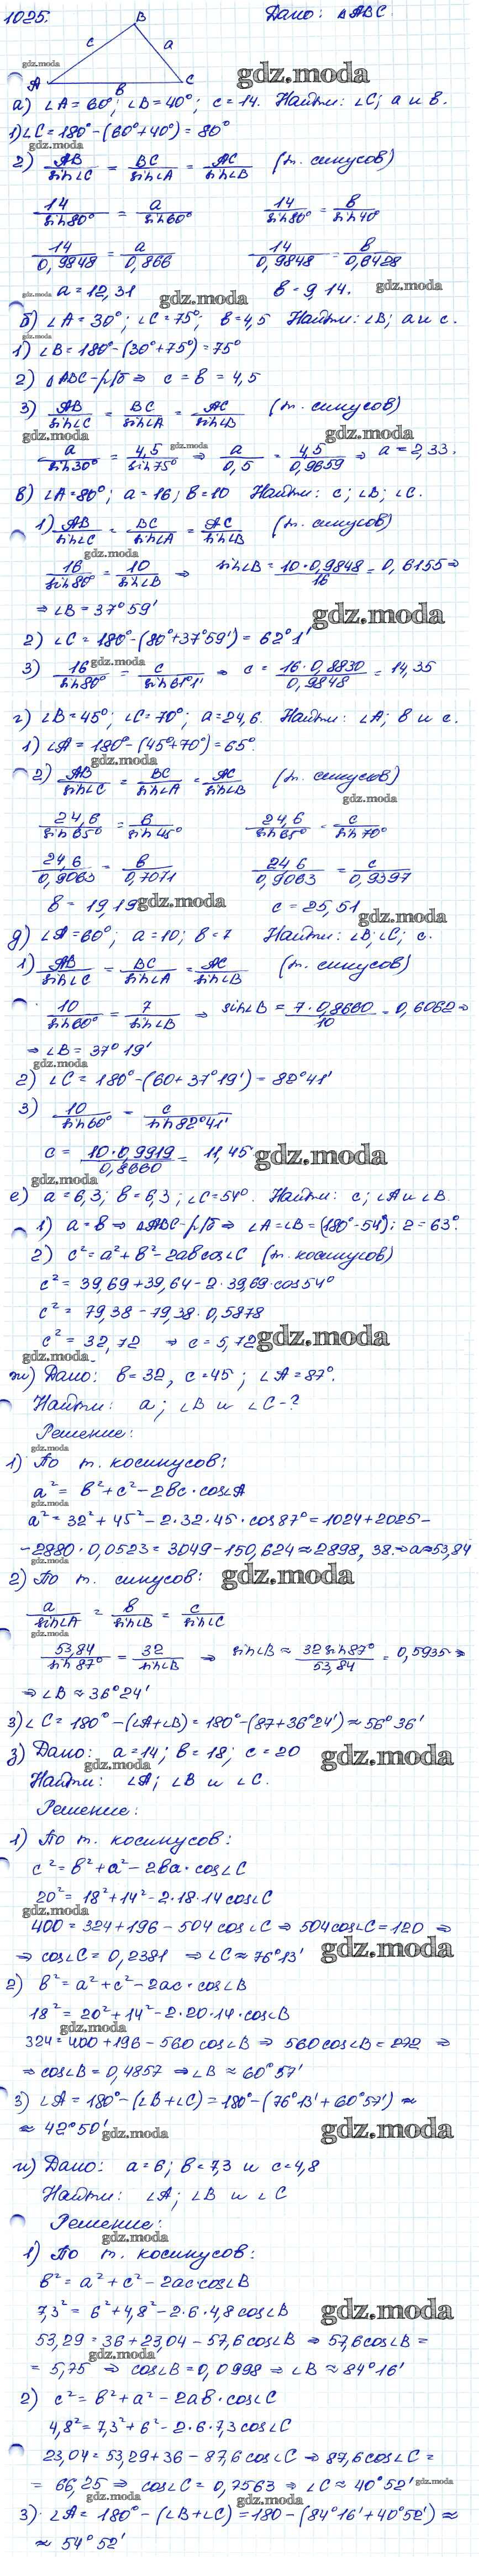 1025.
Дано: △ABC.
B
c a
A b C
gdz.moda
а) ∠A = 60°; ∠B = 40°; c = 14. Найти: ∠C; a и b.
1) ∠C = 180° - (60° + 40°) = 80°
2) AB/sin∠C = BC/sin∠A = AC/sin∠B (т. синусов)
14/sin80° = a/sin60° 14/sin80° = b/sin40°
14/0,9848 = a/0,866 14/0,9848 = b/0,6428
a = 12,31 b = 9,14.
б) ∠A = 30°; ∠C = 75°; b = 4,5 Найти: ∠B; a и c.
1) ∠B = 180° - (30° + 75°) = 75°
2) △ABC - р/б ⇒ c = b = 4,5
3) AB/sin∠C = BC/sin∠A = AC/sin∠B (т. синусов)
a/sin30° = 4,5/sin75° ⇒ a/0,5 = 4,5/0,9659 ⇒ a = 2,33.
в) ∠A = 80°; a = 16; b = 10 Найти: c; ∠B; ∠C.
1) AB/sin∠C = BC/sin∠A = AC/sin∠B (т. синусов)
16/sin80° = 10/sin∠B ⇒ sin∠B = 10·0,9848/16 = 0,6155 ⇒
⇒ ∠B = 37°59'
2) ∠C = 180° - (80° + 37°59') = 62°1'
3) 16/sin80° = c/sin61°1' ⇒ c = 16·0,8830/0,9848 = 14,35
г) ∠B = 45°; ∠C = 70°; a = 24,6. Найти: ∠A; b и c.
1) ∠A = 180° - (45° + 70°) = 65°.
2) AB/sin∠C = BC/sin∠A = AC/sin∠B (т. синусов)
24,6/sin65° = b/sin45° 24,6/sin65° = c/sin70°
24,6/0,9063 = b/0,7071 24,6/0,9063 = c/0,9397
b = 19,19 c = 25,51
д) ∠A = 60°; a = 10; b = 7 Найти: ∠B; ∠C; c.
1) AB/sin∠C = BC/sin∠A = AC/sin∠B (т. синусов)
10/sin60° = 7/sin∠B ⇒ sin∠B = 7·0,8660/10 = 0,6062 ⇒
⇒ ∠B = 37°19'
2) ∠C = 180° - (60 + 37°19') = 82°41'
3) 10/sin60° = c/sin82°41'
c = 10·0,9919/0,8660 = 11,45
е) a = 6,3; b = 6,3; ∠C = 54°. Найти: c; ∠A и ∠B.
1) a = b ⇒ △ABC - р/б ⇒ ∠A = ∠B = (180° - 54°) : 2 = 63°.
2) c² = a² + b² - 2ab cos∠C (т. косинусов)
c² = 39,69 + 39,64 - 2·39,69·cos54°
c² = 79,38 - 79,38·0,5878
c² = 32,72 ⇒ c = 5,72
ж) Дано: b = 32, c = 45; ∠A = 87°.
Найти: a; ∠B и ∠C - ?
Решение:
1) По т. косинусов:
a² = b² + c² - 2bc·cos∠A
a² = 32² + 45² - 2·32·45·cos87° = 1024 + 2025 -
- 2880·0,0523 = 3049 - 150,624 ≈ 2898,38. ⇒ a ≈ 53,84
2) По т. синусов:
a/sin∠A = b/sin∠B = c/sin∠C
53,84/sin87° = 32/sin∠B ⇒ sin∠B ≈ 32 sin87°/53,84 = 0,5935 ⇒
⇒ ∠B ≈ 36°24'
3) ∠C = 180° - (∠A + ∠B) = 180° - (87 + 36°24') ≈ 56°36'
з) Дано: a = 14; b = 18; c = 20
Найти: ∠A; ∠B и ∠C.
Решение:
1) По т. косинусов:
c² = b² + a² - 2ba·cos∠C
20² = 18² + 14² - 2·18·14 cos∠C
400 = 324 + 196 - 504 cos∠C ⇒ 504 cos∠C = 120 ⇒
⇒ cos∠C = 0,2381 ⇒ ∠C ≈ 76°13'
2) b² = a² + c² - 2ac·cos∠B
18² = 20² + 14² - 2·20·14·cos∠B
324 = 400 + 196 - 560 cos∠B ⇒ 560 cos∠B = 272 ⇒
⇒ cos∠B = 0,4857 ⇒ ∠B ≈ 60°57'
3) ∠A = 180° - (∠B + ∠C) = 180° - (76°13' + 60°57') ≈
≈ 42°50'
и) Дано: a = 6; b = 7,3 и c = 4,8
Найти: ∠A; ∠B и ∠C
Решение:
1) По т. косинусов:
b² = a² + c² - 2ac·cos∠B
7,3² = 6² + 4,8² - 2·6·4,8 cos∠B
53,29 = 36 + 23,04 - 57,6 cos∠B ⇒ 57,6 cos∠B =
= 5,75 ⇒ cos∠B = 0,0998 ⇒ ∠B ≈ 84°16'
2) c² = b² + a² - 2ab·cos∠C
4,8² = 7,3² + 6² - 2·6·7,3 cos∠C
23,04 = 53,29 + 36 - 87,6 cos∠C ⇒ 87,6 cos∠C =
= 66,25 ⇒ cos∠C = 0,7563 ⇒ ∠C ≈ 40°52'
3) ∠A = 180° - (∠B + ∠C) = 180 - (84°16' + 40°52') ≈
≈ 54°52'